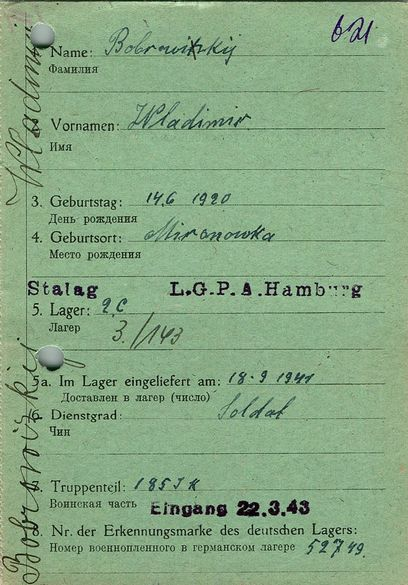 621
Name: Bobrowitzkij
Фамилия
Vornamen: Wladimir
Имя
3. Geburtstag: 14.6 1920
День рождения
4. Geburtsort: Mironowka
Место рождения
Stalag L.G.P.A. Hamburg
5. Lager: 2.C
Лагер 3./143
5a. Im Lager eingeliefert am: 18.9 1941
Доставлен в лагер (число)
6. Dienstgrad: Soldat
Чин
Truppenteil: 185 J R
Воинская часть Eingang 22.3.43
Nr. der Erkennungsmarke des deutschen Lagers:
Номер военнопленного в германском лагере 52749.
Bobrowizkij Wladimir